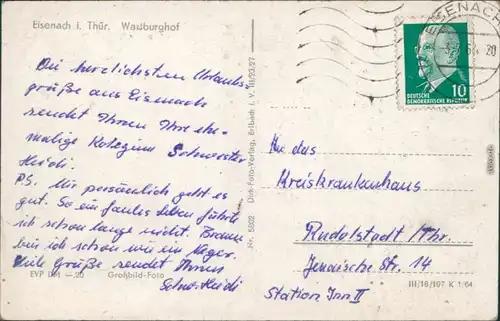 Eisenach i. Thür. Wartburghof
Die herzlichsten Urlaubs-
grüße aus Eisenach
sendet Ihnen Ihre ehe-
malige Kollegin Schwester
Heidi.
PS. Mir persönlich geht es
gut. So ein faules Leben führte
ich schon lange nicht. Braun
bin ich schon wie ein Neger.
Viele Grüße sendet Ihnen
Schw. Heidi
EVP DM —.20 Großbild-Foto
Nr. 5502 Dick-Foto-Verlag, Erlbach i. V. III/23/27
EISENACH
20
DEUTSCHE
DEMOKRATISCHE REPUBLIK
10
An das
Kreiskrankenhaus
Rudolstadt Thr.
Jenaische Str. 14
Station Inn II
III/18/197 K 1/64